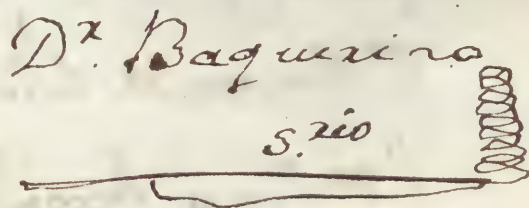 Dr. Baquerizo
S.rio